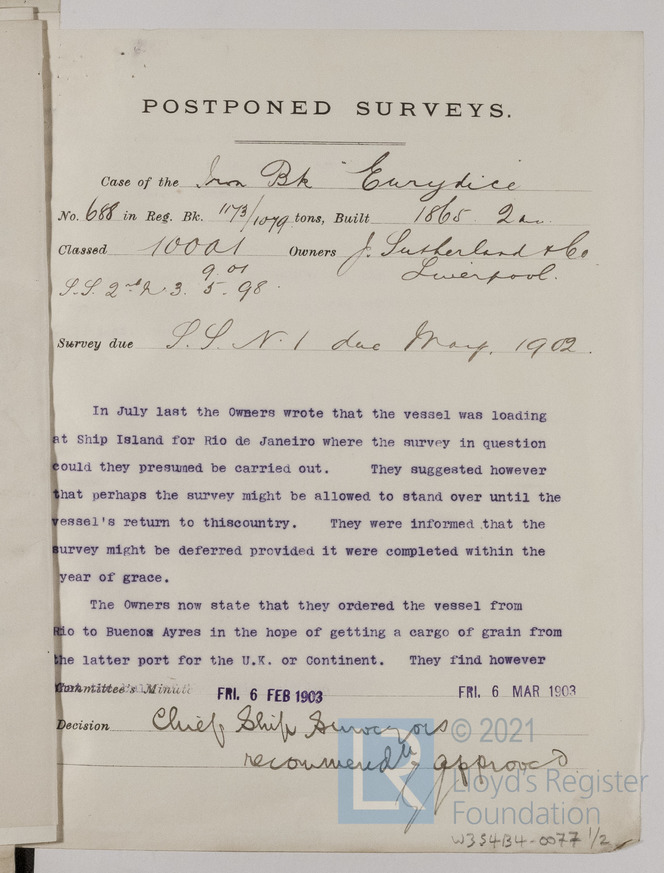 POSTPONED SURVEYS.
Case of the Iron Bk "Eurydice
No. 688 in Reg. Bk. 1173/1079 tons, Built 1865 2
Classed 100A1 Owners J. Sutherland & Co
9.01 Liverpool.
S.S. 2nd N. 3. 5. 98.
Survey due S. S. N. 1 due May, 1902.
In July last the Owners wrote that the vessel was loading
at Ship Island for Rio de Janeiro where the survey in question
could they presumed be carried out. They suggested however
that perhaps the survey might be allowed to stand over until the
vessel's return to thiscountry. They were informed that the
survey might be deferred provided it were completed within the
year of grace.
The Owners now state that they ordered the vessel from
Rio to Buenos Ayres in the hope of getting a cargo of grain from
the latter port for the U.K. or Continent. They find however
Committee's Minute FRI. 6 FEB 1903 FRI. 6 MAR 1903
Decision Chief Ship Surveyors
recommendn approved
© 2021
LR
Lloyd's Register
Foundation
W3S4B4-0077 1/2